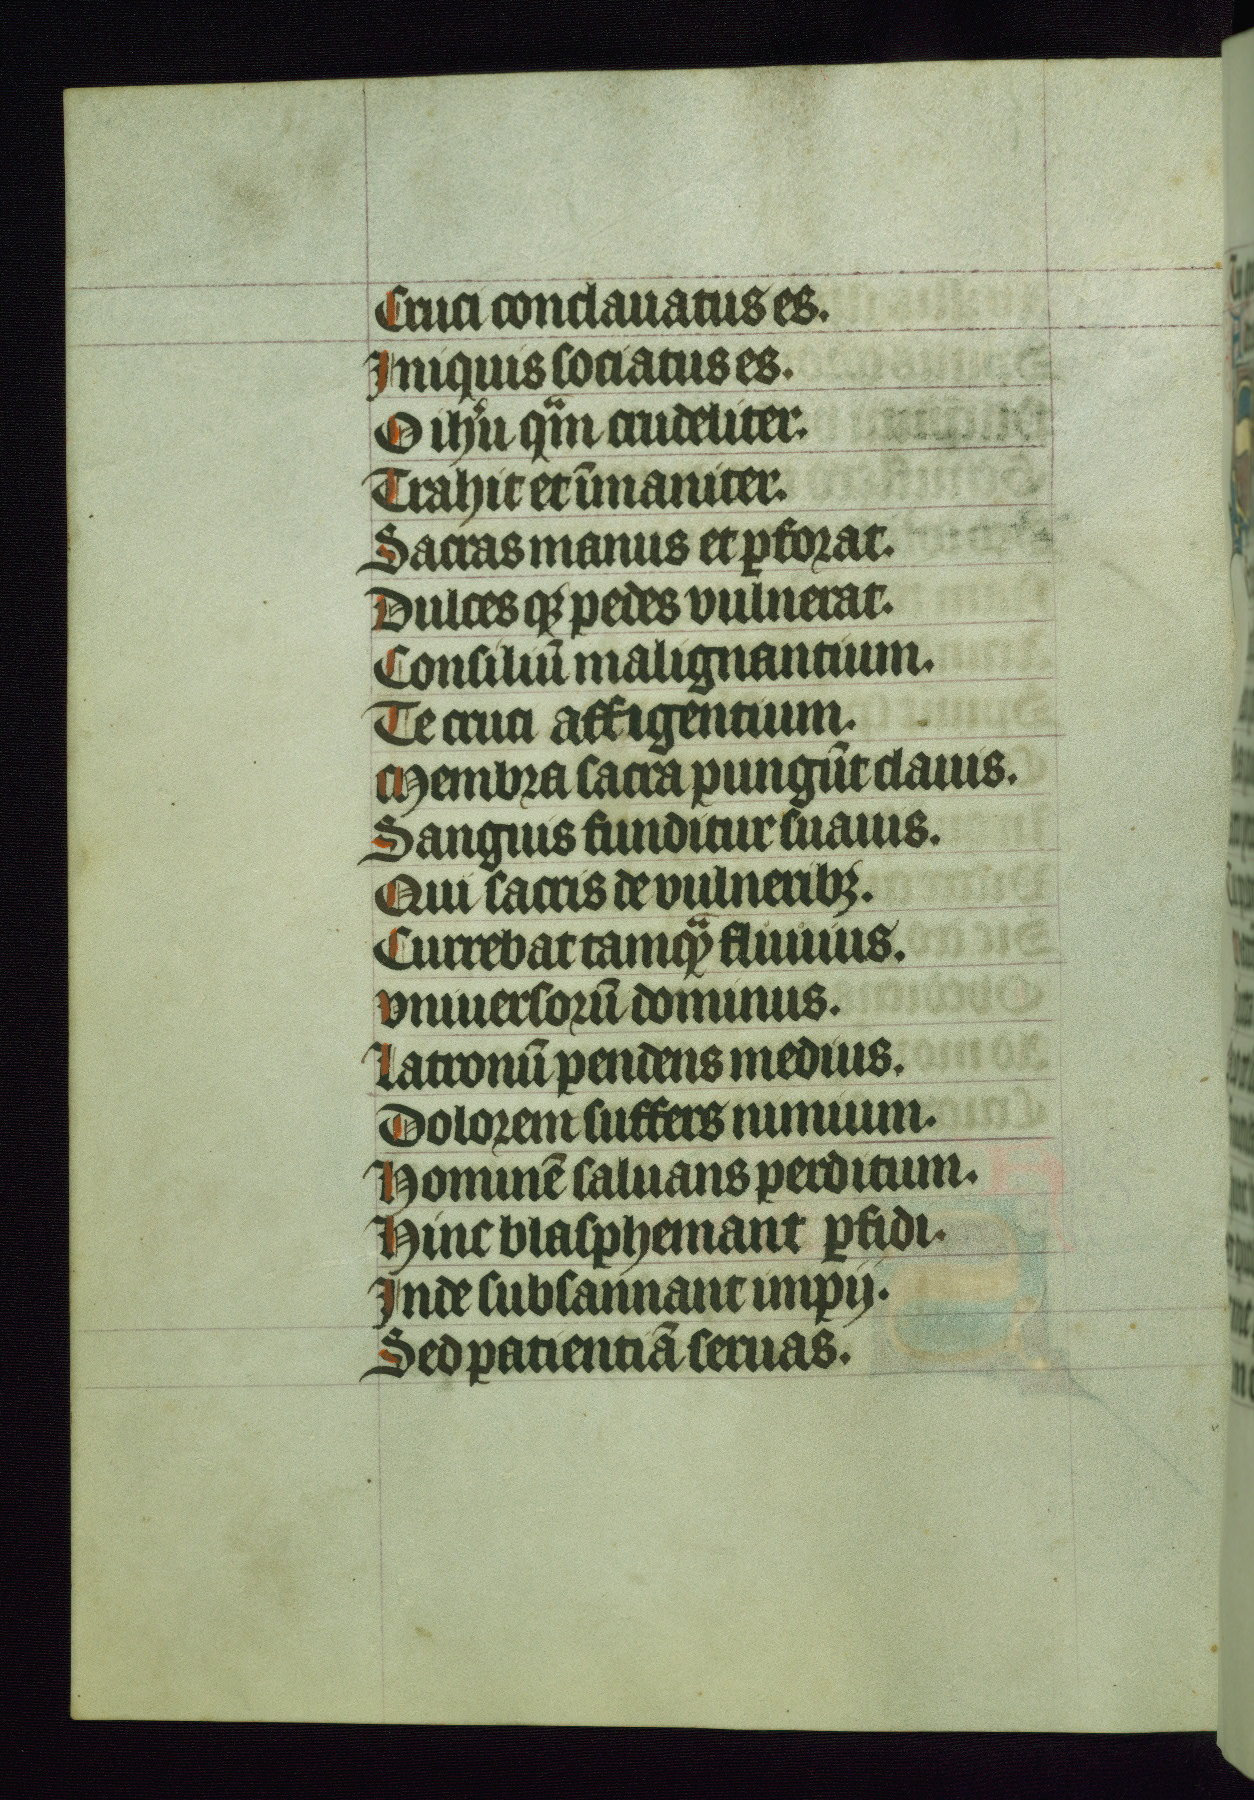 Cruci conclauatus es.
Iniquis sociatus es.
O ihū qm̄ crudeliter.
Trahit et īmaniter.
Sacras manus et ꝑforat.
Dulces qꝫ pedes vulnerat.
Consiliū malignantium.
Te cruci affigentium.
Membra sacra pungūt clauis.
Sanguis funditur suauis.
Qui sacris de vulneribꝫ.
Currebat tamqͣꝫ fluuius.
vniuersorū dominus.
Latronū pendens medius.
Dolorem suffers nimium.
Hominē saluans perditum.
Hinc blasphemant ꝑfidi.
Inde subsannant impij.
Sed patientiā seruas.